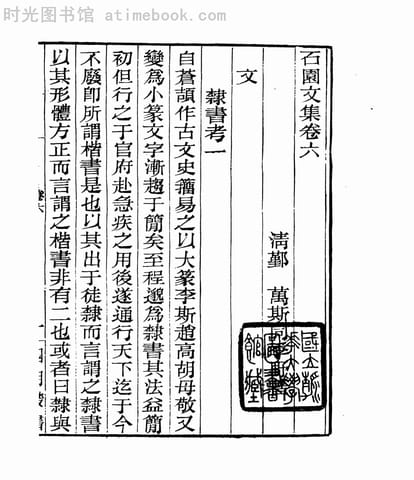 时光图书馆 atimebook.com
石園文集卷六
清鄞 萬斯
國立清
華大學
圖書
館藏
文
隸書考一
自蒼頡作古文史籒易之以大篆李斯趙高胡母敬又
變爲小篆文字漸趨于簡矣至程邈爲隸書其法益簡
初但行之于官府赴急疾之用後遂通行天下迄于今
不廢卽所謂楷書是也以其出于徒隸而言謂之隸書
以其形體方正而言謂之楷書非有二也或者曰隸與